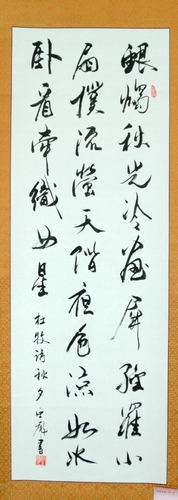 銀燭秋光冷畫屏輕羅小
扇撲流螢天階夜色涼如水
卧看牽織女星 杜牧詩秋夕 書